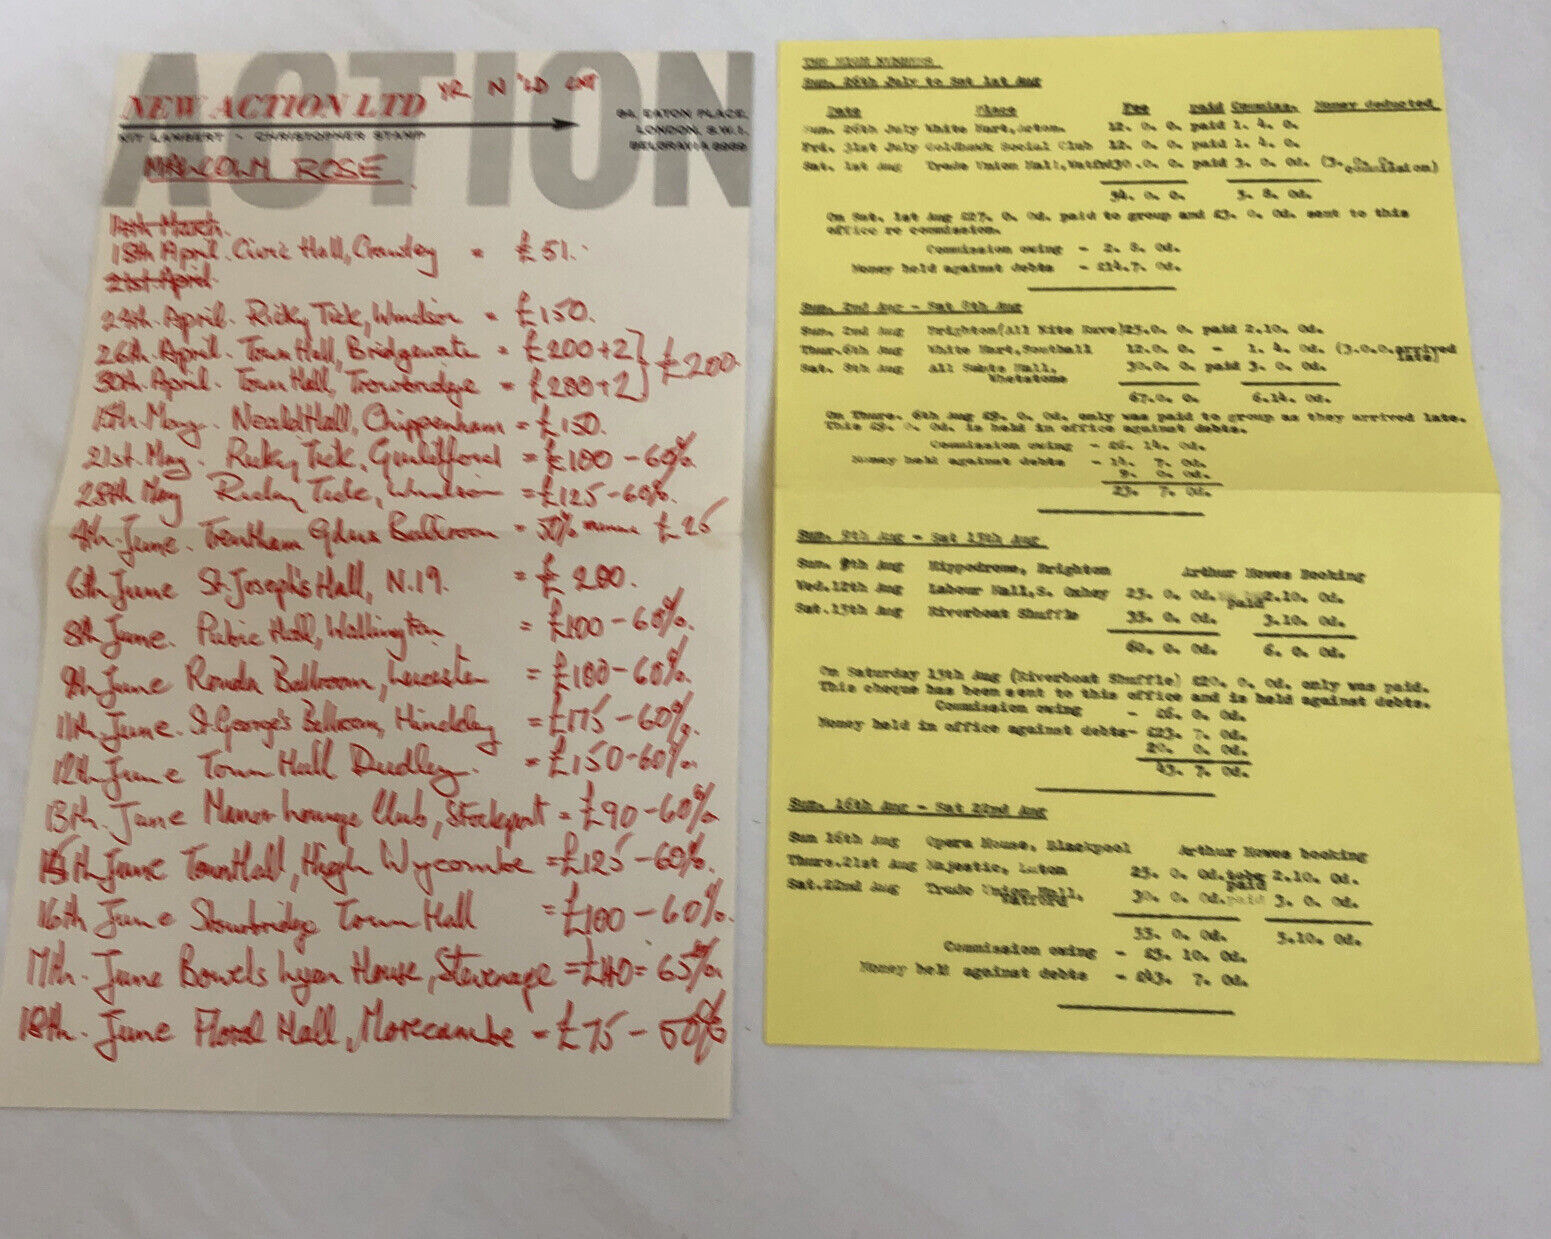 ACTION
NEW ACTION LTD
KIT LAMBERT - CHRISTOPHER STAMP
94, EATON PLACE,
LONDON, S.W.1.
BELGRAVIA 8989
MALCOLM ROSE
14th March.
15th April. Civic Hall, Crawley = £51.
21st April
29th. April. Ricky Tick, Windsor = £150.
26th. April. Town Hall, Bridgewater = £200+2
£200.
30th. April. Town Hall, Trowbridge = £200+2
15th. May. Neald Hall, Chippenham = £150.
21st. May. Ricky Tick, Guildford = £100 - 60%.
28th May Ricky Tick, Windsor = £125 - 60%.
4th. June. Trentham Gdns Ballroom = 50% £25
6th June St. Joseph's Hall, N.19. = £200.
8th June. Public Hall, Wallington = £100 - 60%.
9th June Ronda Ballroom, Leicester = £100 - 60%.
11th June. St. George's Ballroom, Hinckley = £175 - 60%.
12th June Town Hall Dudley. = £150 - 60%.
13th. June Manor Lounge Club, Stockport = £90 - 60%
15th June Town Hall, High Wycombe = £125 - 60%.
16th June Stourbridge Town Hall = £100 - 60%.
17th. June Bowes Lyon House, Stevenage = £40 = 65%.
18th. June Floral Hall, Morecambe = £75 - 50%
THE HIGH NUMBERS
Sun. 26th July to Sat 1st Aug
Date Place Fee paid Commiss. Money deducted
Sun. 26th July White Hart, Acton. 12. 0. 0. paid 1. 4. 0.
Fri. 31st July Goldhawk Social Club 12. 0. 0. paid 1. 4. 0.
Sat. 1st Aug Trade Union Hall, Watfd 30. 0. 0. paid 3. 0. 0d. (3. 0. 0.
commission)
54. 0. 0. 5. 8. 0d.
On Sat. 1st Aug £27. 0. 0d. paid to group and £3. 0. 0d. sent to this
office re commission.
Commission owing - 2. 8. 0d.
Money held against debts - £14.7. 0d.
Sun. 2nd Aug - Sat 8th Aug
Sun. 2nd Aug Brighton(All Nite Rave) 25.0. 0. paid 2.10. 0d.
Thur.6th Aug White Hart, Southall 12.0. 0. - 1. 4. 0d. (3.0.0.arrived
late)
Sat. 8th Aug All Saints Hall, 30.0. 0. paid 3. 0. 0d.
Whetstone
67.0. 0. 6.14. 0d.
On Thurs. 6th Aug £9. 0. 0d. only was paid to group as they arrived late.
This £9. 0. 0d. is held in office against debts.
Commission owing - £6. 14. 0d.
Money held against debts - 14. 7. 0d.
9. 0. 0d.
23. 7. 0d.
Sun. 9th Aug - Sat 15th Aug
Sun. 9th Aug Hippodrome, Brighton Arthur Howes Booking
Wed.12th Aug Labour Hall,S. Oxhey 25. 0. 0d. paid 2.10. 0d.
Sat.15th Aug Riverboat Shuffle 35. 0. 0d. 3.10. 0d.
60. 0. 0d. 6. 0. 0d.
On Saturday 15th Aug (Riverboat Shuffle) £20. 0. 0d. only was paid.
This cheque has been sent to this office and is held against debts.
Commission owing - £6. 0. 0d.
Money held in office against debts- £23. 7. 0d.
20. 0. 0d.
43. 7. 0d.
Sun. 16th Aug - Sat 22nd Aug
Sun 16th Aug Opera House, Blackpool Arthur Howes booking
Thurs.21st Aug Majestic, Luton 25. 0. 0d. 2.10. 0d.
Sat.22nd Aug Trade Union Hall, 30. 0. 0d. paid 3. 0. 0d.
Watford
55. 0. 0d. 5.10. 0d.
Commission owing - £5. 10. 0d.
Money held against debts - £43. 7. 0d.